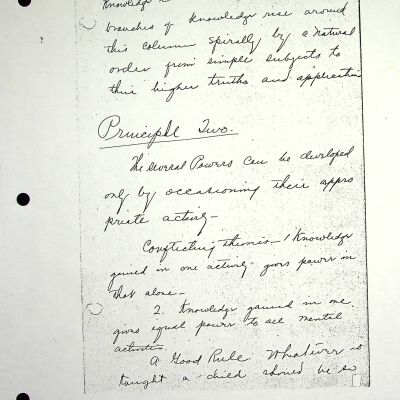 branches of knowledge rise around
this column spirally by a natural
order from simple subjects to
their higher truths and application
Principle Two.
The several Powers can be developed
only by occasioning their appro
priate acting -
Conflicting theories - 1 Knowledge
gained in one acting - gives power in
that alone -
2. Knowledge gained in one
gives equal power to all mental
activities.
A Good Rule Whatever is
taught a child should be so